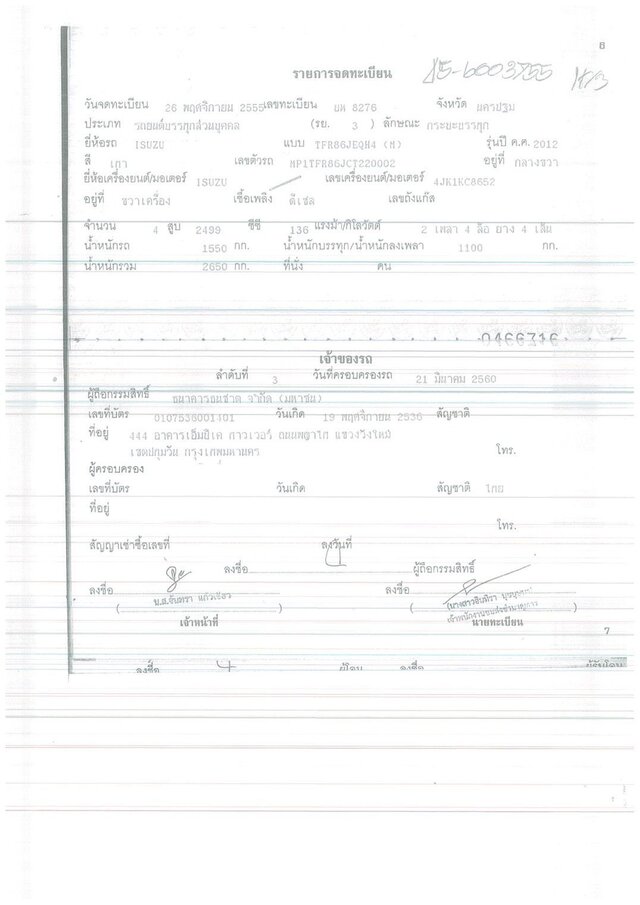 6
รายการจดทะเบียน 15-6003755
วันจดทะเบียน 26 พฤศจิกายน 2555 เลขทะเบียน ยห 8276 จังหวัด นครปฐม
ประเภท รถยนต์บรรทุกส่วนบุคคล (รย. 3 ) ลักษณะ กระบะบรรทุก
ยี่ห้อรถ ISUZU แบบ TFR86JEQH4 (M) รุ่นปี ค.ศ. 2012
สี เทา เลขตัวรถ MP1TFR86JCT220002 อยู่ที่ กลางขวา
ยี่ห้อเครื่องยนต์/มอเตอร์ ISUZU เลขเครื่องยนต์/มอเตอร์ 4JK1KC8652
อยู่ที่ ขวาเครื่อง เชื้อเพลิง ดีเซล เลขถังแก๊ส
จำนวน 4 สูบ 2499 ซีซี 136 แรงม้า/กิโลวัตต์ 2 เพลา 4 ล้อ ยาง 4 เส้น
น้ำหนักรถ 1550 กก. น้ำหนักบรรทุก/น้ำหนักลงเพลา 1100 กก.
น้ำหนักรวม 2650 กก. ที่นั่ง คน
0466716
เจ้าของรถ
ลำดับที่ 3 วันที่ครอบครองรถ 21 มีนาคม 2560
ผู้ถือกรรมสิทธิ์ ธนาคารธนชาต จำกัด (มหาชน)
เลขที่บัตร 0107536001401 วันเกิด 19 พฤศจิกายน 2536 สัญชาติ
ที่อยู่ 444 อาคารเอ็มบีเค ทาวเวอร์ ถนนพญาไท แขวงวังใหม่
เขตปทุมวัน กรุงเทพมหานคร โทร.
ผู้ครอบครอง
เลขที่บัตร วันเกิด สัญชาติ ไทย
ที่อยู่
โทร.
สัญญาเช่าซื้อเลขที่ ลงวันที่
ลงชื่อ ผู้ถือกรรมสิทธิ์
ลงชื่อ ลงชื่อ
( น.ส.จันทรา ) ( )
เจ้าหน้าที่ นายทะเบียน
7
ลงชื่อ ผู้โอน ลงชื่อ ผู้รับโอน